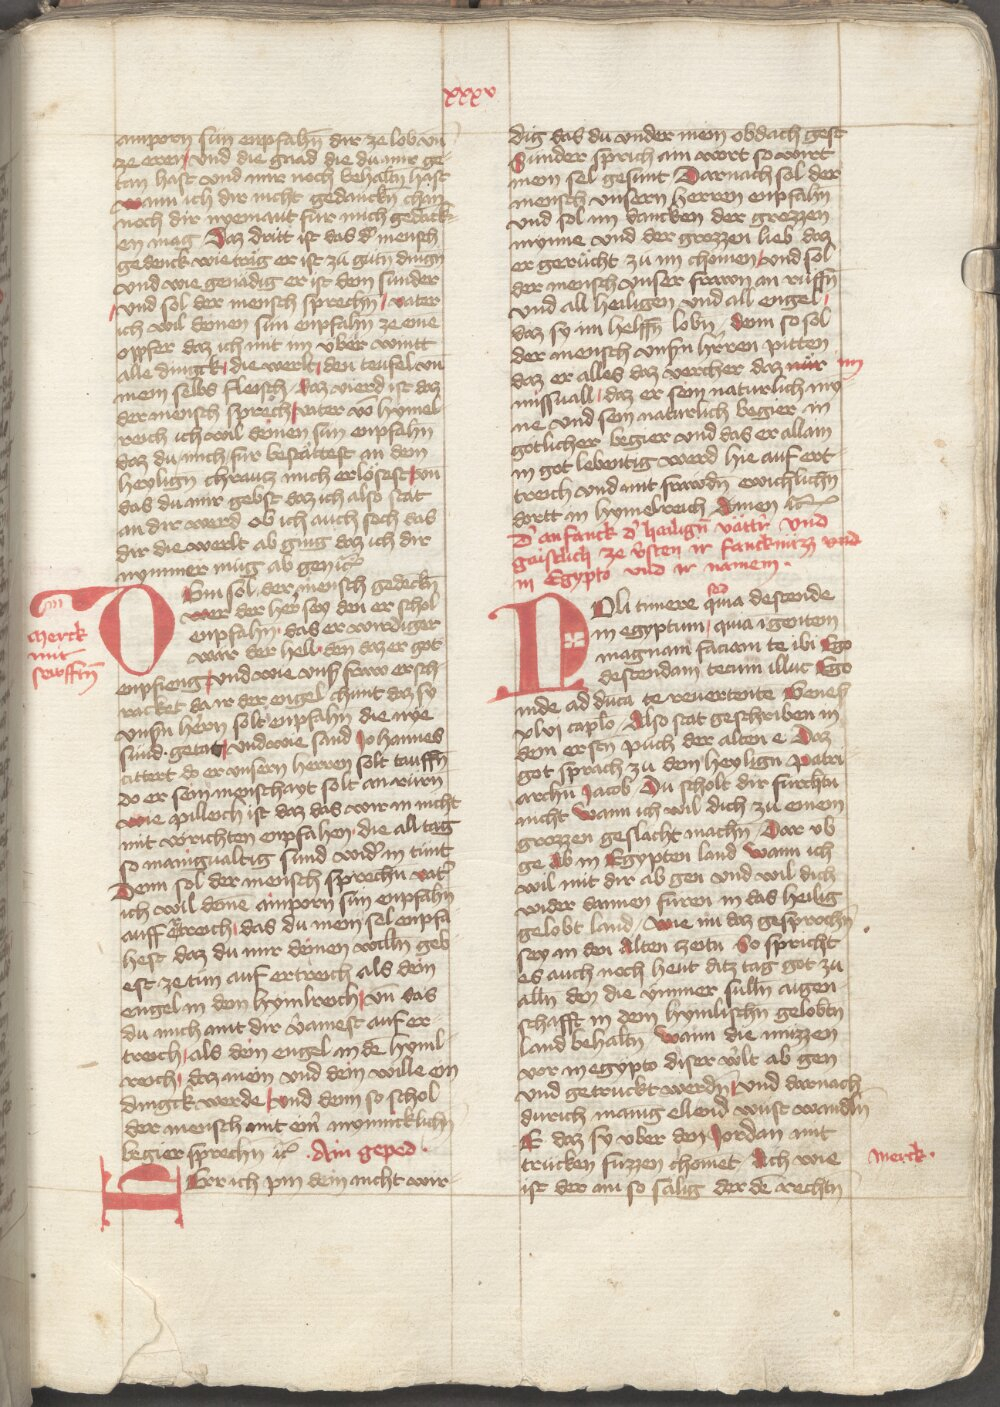 xxxv
ainporn sun enpfahn dir ze lob vn
ze eren / vnd die gnad die du mir ge-
tan hast vnd mir noch behaltn hast
wann ich dir nicht gedanckn chan
noch dir nyemant fur mich gedanck-
en mag Daz dritt ist das d' mensch
gedenck wie trig er ist zu gutn dingn
vnd wie genädig er ist dem sunder
vnd sol der mensch sprechn / vater
ich wil deinen sun enpfahn ze eine
opffer daz ich mit im vber wintt
alle dingk / die werlt / den teufel vn
mein selbs fleisch / Daz vierd ist daz
der mensch sprech / vater vo hymel
reich ich wil deinen sun enpfahn
daz du mich fur bestättest an dem
heylign chrautz mich erlösest / vn
das du mir gebst daz ich also stat
an dir werd ob ich auch sech das
dir die werlt ab ging daz ich dir
nymmer mug ab gen ic
Dem sol der mensch gedeckn
wer der her sey den er schol
enpfahn das er wirdiger
war der hell den daz er got
enpfieng / vnd wie vnser fraw ersch
racket da ir der engel chunt daz sy
vnsern hern solt enpfahn die nye
sund getat / vnd wie sand Johannes
cittert do er vnsern herren solt tauffn
do er sein menschayt solt an rürn
wie pilleich ist daz das wir in nicht
mit vorichten enpfahen die all tag
so manigualtig sund wid' in tunt
Denn sol der mensch sprechn vat'
ich wil deine ainporn sun enpfahn
auff Ertreich / das du mein sel enpfa
hest daz du mir deinen willn geb
est ze tun auf ertreich als dein
engel in dem hymlreich / vn das
du mich mit dir v'ainest auf er-
treich / als dein engel in de hyml-
reich / daz mein vnd dein wille ein
dingk werde / vnd denn so schol
der mensch mit ein' mynnicklichn
begier sprechn ic Ain geped
Herr ich pin dein nicht wir-
merck
mit
dig das du vnder mein obdach gest
Sunder sprich ain wort so wirt
mein sel gesunt / Darnach sol der
mensch vnsern herren enpfahn
vnd sol im dancken der grozzen
mynne vnd der grozzen lieb daz
er gerücht zu im chomen / vnd sol
der mensch vnser frawn an rüffn
vnd all heiligen vnd all engel /
daz sy im helffn lobn / denn so sol
der mensch vnsern herren pitten
daz er alles daz vercher daz im
missuall / daz er sein naturlich my
ne vnd sein naturlich begier in
gotlicher begier vnd das er allain
in got lebentig werd hie auf ert-
treich vnd mit frawdn ewichlichn
dortt in hymelreich Amen ic
D' anfanck d' heilign vätt' vnd
gaistlich ze ersten ir fancknuzz vnd
in Egypto vnd ir namem
Noli timere quia descende
in egyptum / quia i gentem
magnam faciam te ibi Ego
descendam tecum illuc Ego
inde ad duca te reuertente Genes
xlvi caplo / Also stat geschriben in
dem ersten puch der alten e Daz
got sprach zu dem heylign Patri
archn Jacob Du scholt dir furchtn
nicht wann ich wil dich zu einem
grozzen geslacht machn / Dar vb
ge ab in Egypten land wann ich
wil mit dir ab gen vnd wil dich
wider dannen füren in das heilig
gelobt land / wie nu daz gesprochn
sey an den alten zeitn So spricht
es auch noch heut ditz tag got zu
alln den die ymmer sulln aigen-
schafft in dem hymlischn gelobtn
land behaltn wann die muzzen
vor in egypto diser welt ab gen
vnd getruckt werdn / vnd darnach
durich manig ellend wüst wandln
E daz sy vber den Jordan mit
trucken fuzzen chomet / Ach wie
ist der ain so sälig der de rechtn
merck